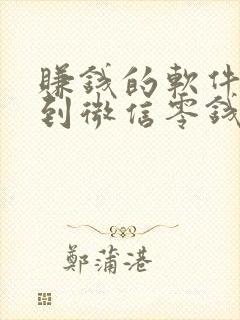 賺錢的軟件
到微信零錢
鄭蒲港